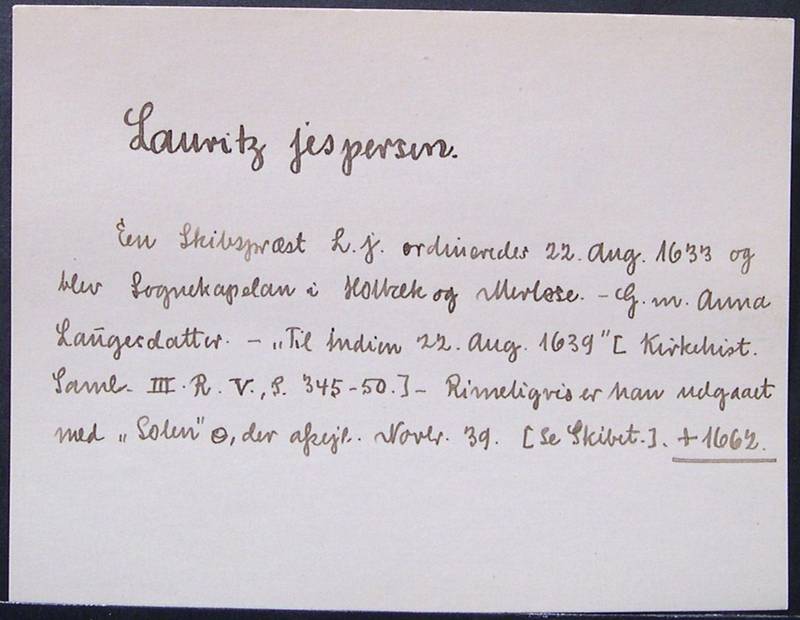 Lauritz Jespersen.
En Skibspræst L. J. ordineredes 22. Aug. 1633 og
blev Sognekapelan i Holbæk og Merløse. – G. m. Anna
Laugesdatter. – „Til Indien 22. Aug. 1639" [ Kirkehist.
Saml. III. R. V., S. 345-50.] – Rimeligvis er han udgaaet
med „Solen" ☉, der afsejl. Novbr. 39. [Se Skibet.]. + 1662.